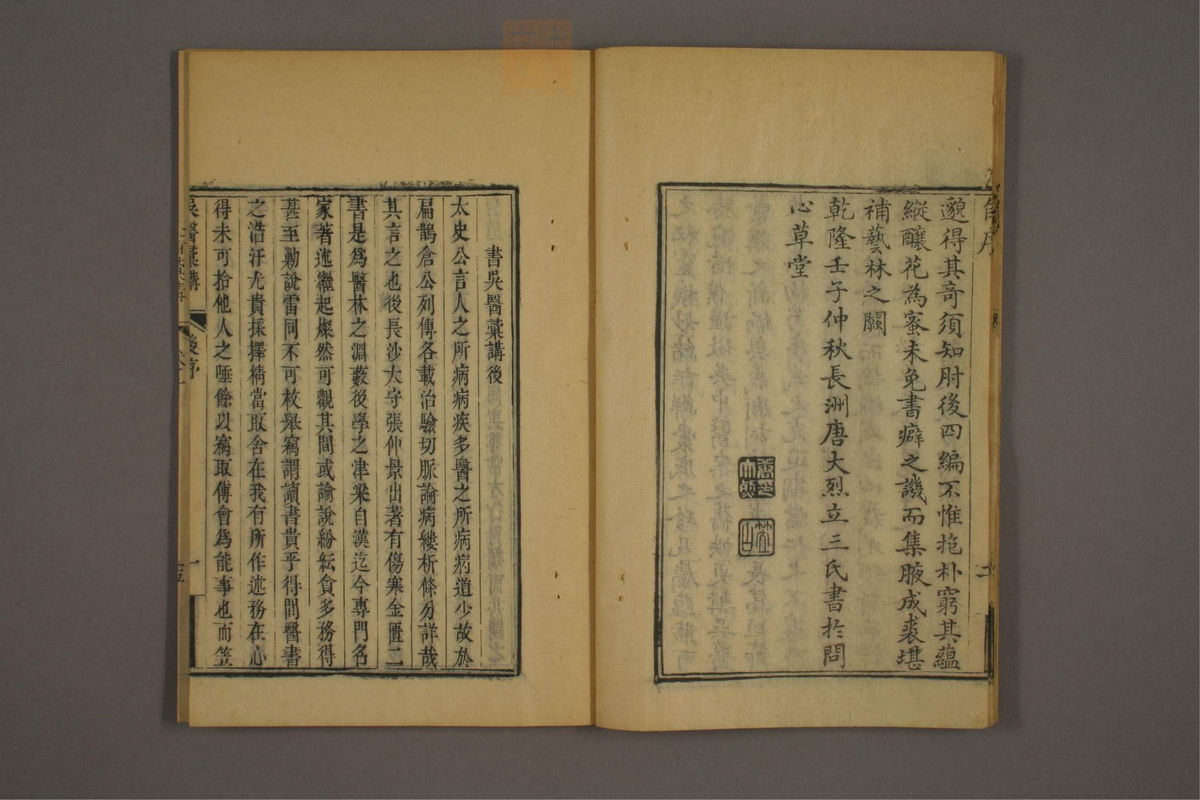 邈得其奇須知肘後四編不惟抱朴窮其蘊
縱釀花為蜜未免書癖之譏而集腋成裘堪
補藝林之闕
乾隆壬子仲秋長洲唐大烈立三氏書於問
心草堂
書吳醫彙講後
太史公言人之所病病疾多醫之所病病道少故於
扁鵲倉公列傳各載治驗切脈論病縷析條分詳哉
其言之也後長沙大守張仲景出著有傷寒金匱二
書是爲醫林之淵藪後學之津梁自漢迄今專門名
家著述繼起燦然可觀其間或論說紛紜貪多務得
甚至勦說雷同不可枚舉竊謂讀書貴乎得間醫書
之浩汗尤貴採擇精當取舍在我有所作述務在心
得未可拾他人之唾餘以竊取傅會爲能事也而笠
吳醫彙講
後序
一